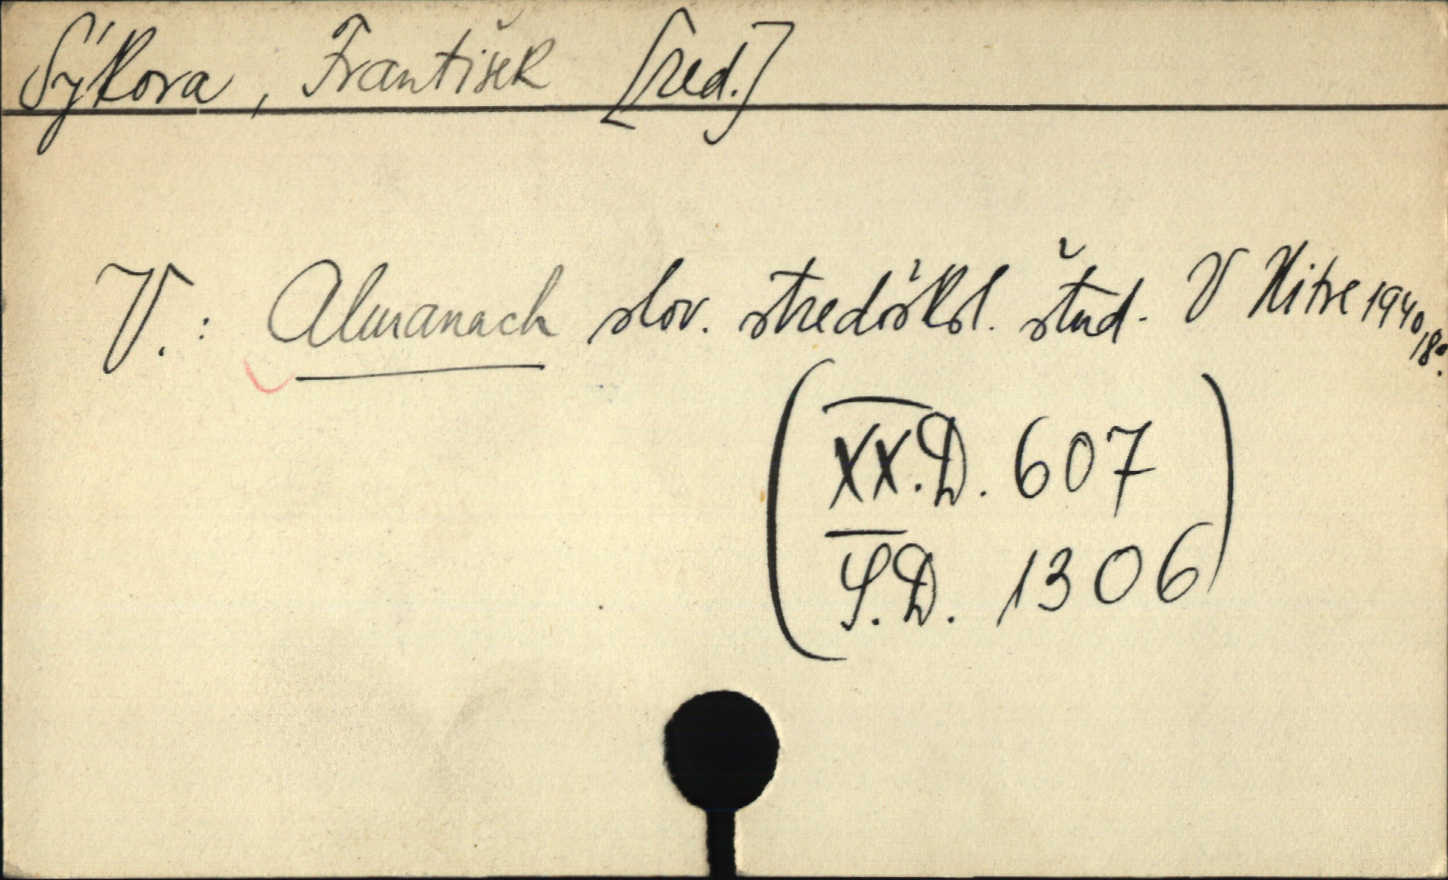 Sýkora, František [red.]
V.: Almanach slov. stredoškol. štud. V Nitre 1940, 18°.
(XX.D. 607
S.D. 1306)